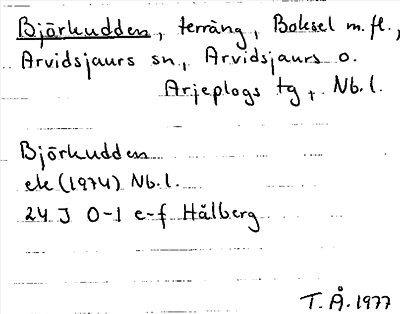 Björkudden, terräng, Boksel m.fl.,
Arvidsjaurs sn, Arvidsjaurs o.
Arjeplogs tg, Nb.l.
Björkudden
ek (1974) Nb.l.
24 J 0-1 e-f Hålberg
T.Å. 1977